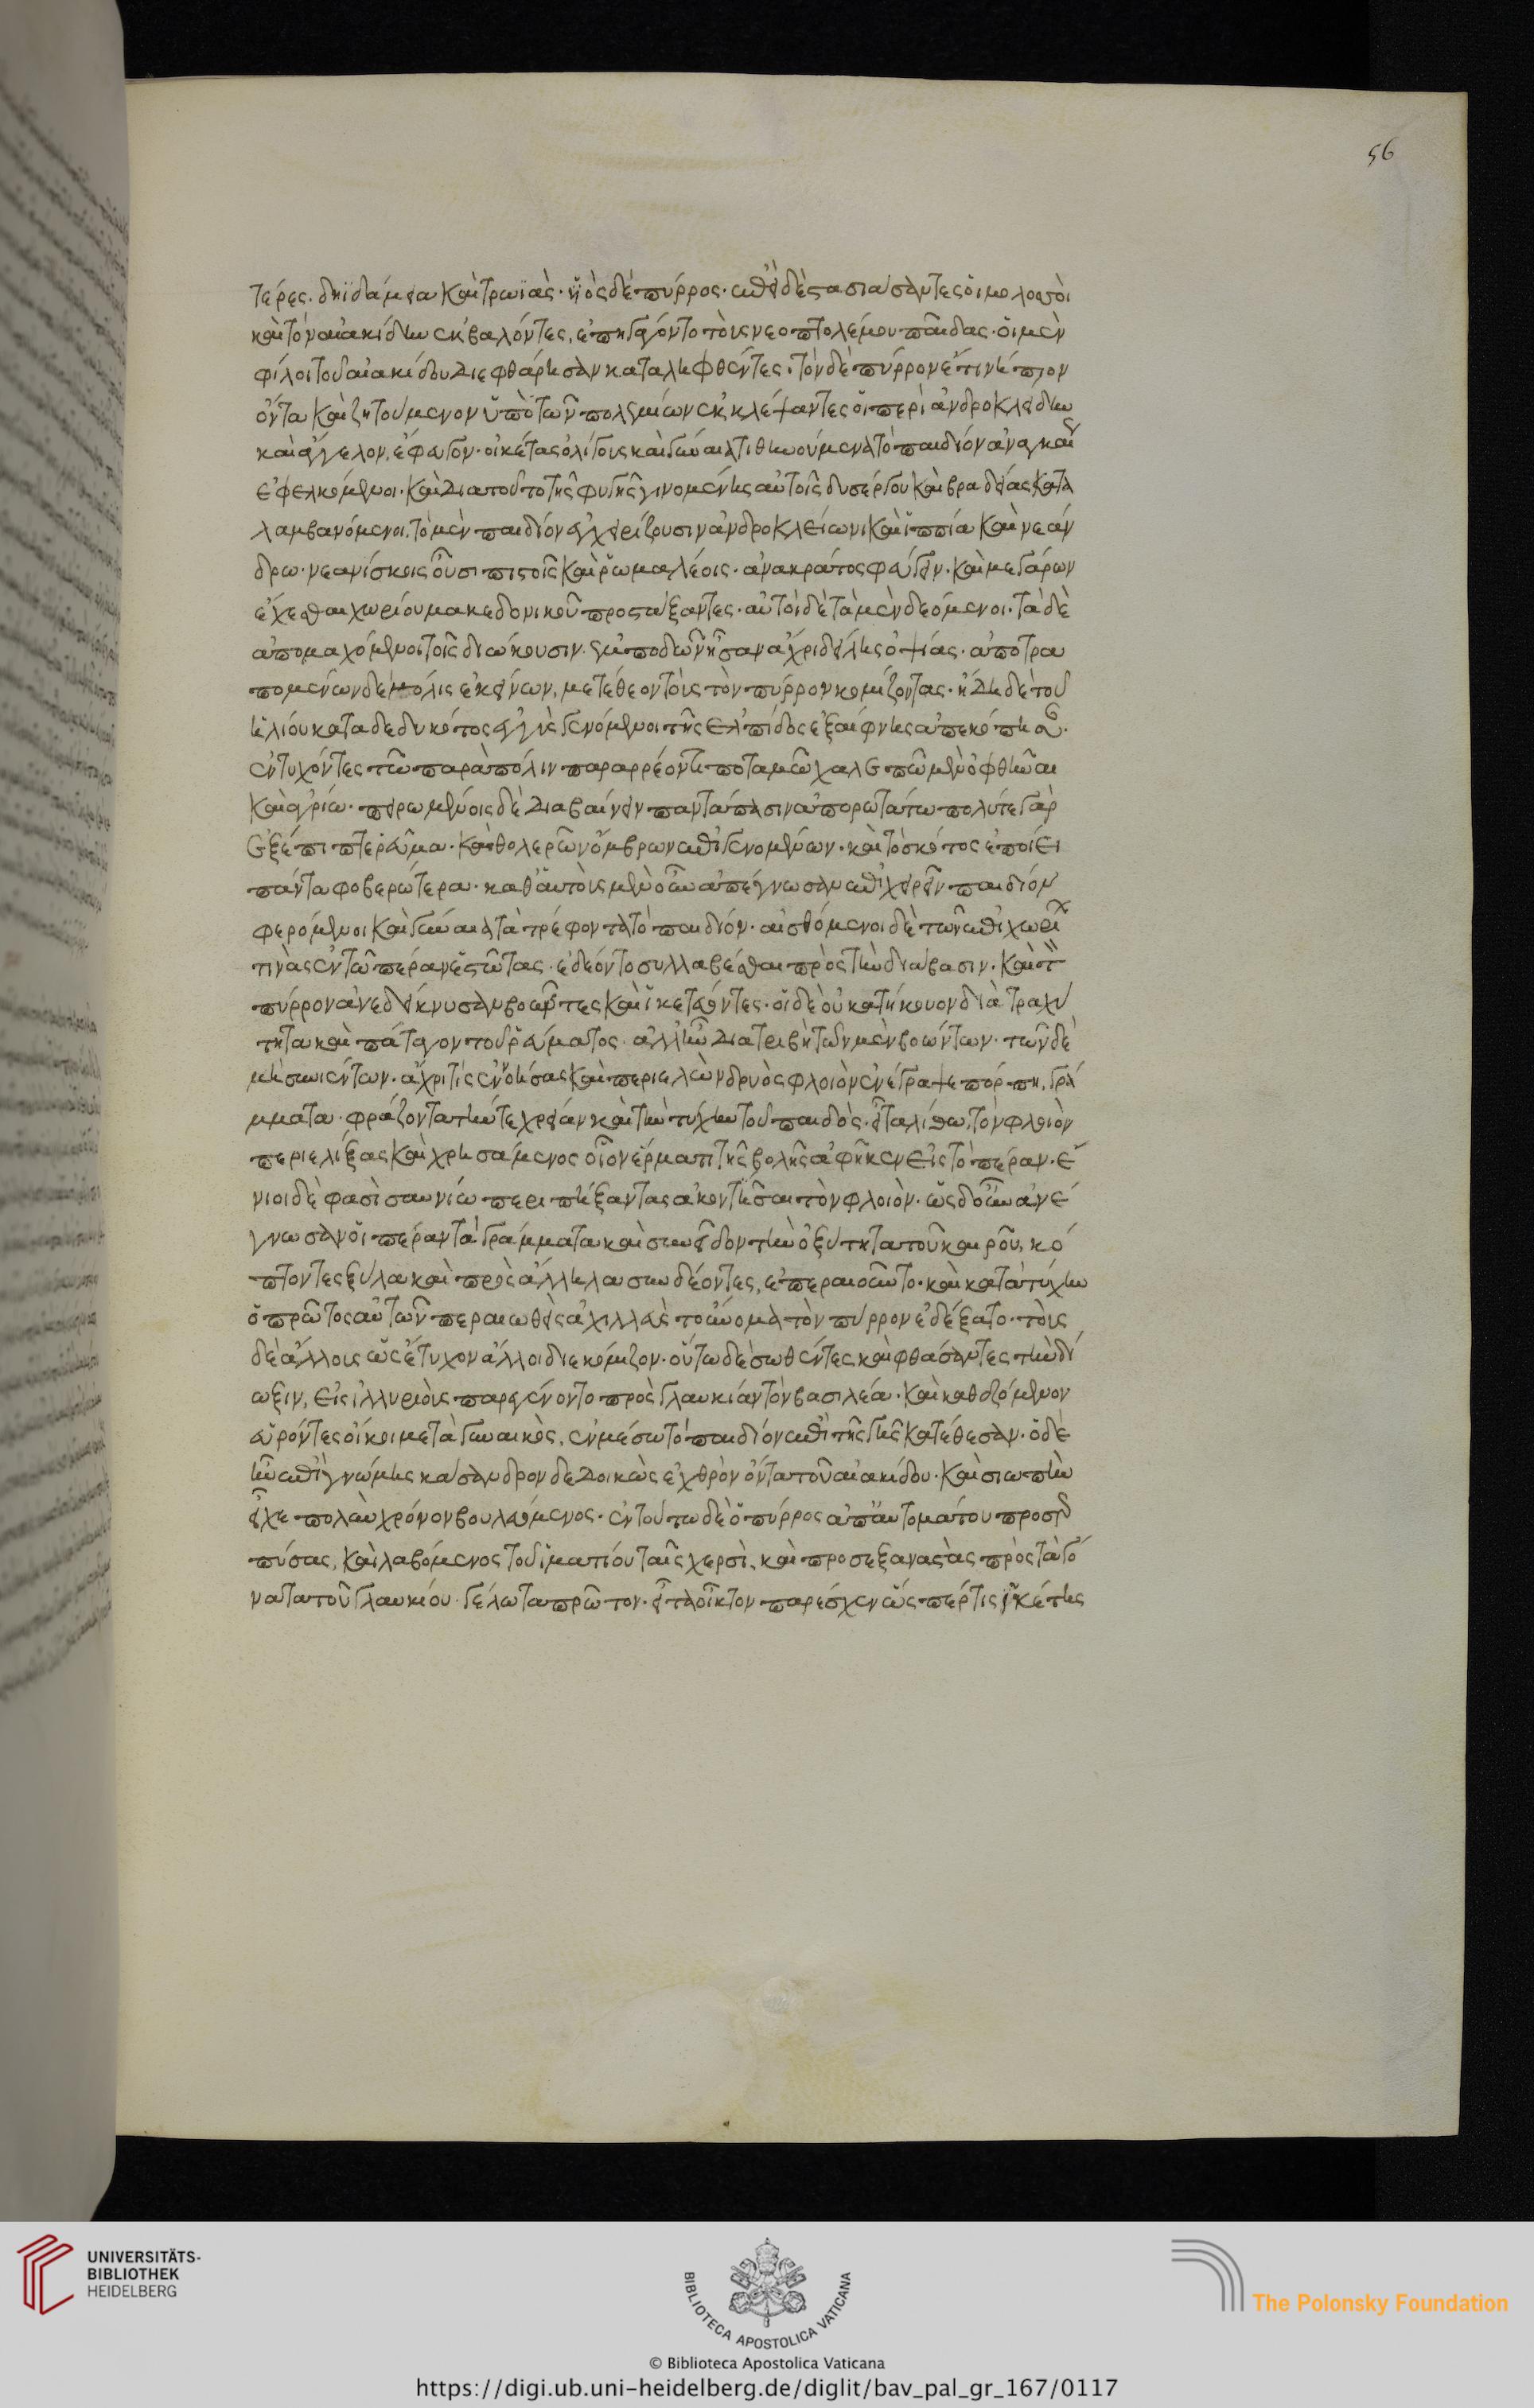 56
τέρες. δηϊδάμεια καὶ τρωϊὰς· ὑιὸς δὲ πύρρος· ἐπεὶ δὲ στασιάσαντες οἱ μολοσσοὶ
καὶ τὸν αἰακίδην ἐκβαλόντες, ἐπηγάγοντο τοὺς νεοπτολέμου παῖδας· οἱ μὲν
φίλοι τοῦ αἰακίδου διεφθάρησαν καταληφθέντες. τὸν δὲ πύρρον ἔτι νήπιον
ὄντα καὶ ζητούμενον ὑπὸ τῶν πολεμίων ἐκκλέψαντες οἱ περὶ ἀνδροκλείδην
καὶ ἄγγελον, ἔφευγον· οἰκέτας ὀλίγους καὶ γύναια τιθηνούμενα τὸ παιδίον ἀναγκαί
ἐφελκόμενοι. καὶ διατοῦτο τῆς φυγῆς γινομένης αὐτοῖς δυσέργου καὶ βραδείας κατα
λαμβανόμενοι. τὸ μὲν παιδίον ἐγχειρίζουσιν ἀνδροκλείωνι καὶ ἱππία καὶ νεάν
δρω· νεανίσκοις οὖσι πιστοῖς καὶ ῥωμαλέοις. ἀνακράτος φεύγειν. καὶ μεγάρων
ἔχεσθαι χωρίου μακεδονικοῦ προστάξαντες· αὐτοὶ δὲ τὰ μὲν δεόμενοι. τὰ δὲ
ἀπομαχόμενοι τοῖς διώκουσιν. ἐμποδὼν ἦσαν ἄχρι δείλης ὀψίας· ἀποτρα
πομένων δὲ μόλις ἐκείνων, μετέθεον τοὺς τὸν πύρρον κομίζοντας. ἤδη δὲ τοῦ
ἡλίου καταδεδυκότος ἐγγὺς γενόμενοι τῆς ἐλπίδος ἐξαίφνης ἀπεκόπησ.
ἐντυχόντες τῶ παρὰ πόλιν παραρρέοντι ποταμῶ χαλεπῶ μὲν ὀφθῆναι
καὶ ἀγρίω. πειρωμένοις δὲ διαβαίνειν παντάπασιν ἀπορωτάτω πολύ τε γὰρ
ἐξέπιπτε ῥεῦμα. καὶ θολερῶν ὄμβρων ἐπιγενομένων. καὶ τὸ σκότος ἐποίει
πάντα φοβερώτερα· καθ' αὑτοὺς μὲν οὖν ἀπέγνωσαν ἐπιχειρεῖν παιδίον
φερόμενοι καὶ γύναια τὰ τρέφοντα τὸ παιδίον. αἰσθόμενοι δὲ τῶν ἐπιχωρί
τινὰς ἐν τῶ πέραν ἑστῶτας. ἐδέοντο συλλαβέσθαι πρὸς τὴν διάβασιν. καὶ τ
πύρρον ἀνεδείκνυσαν βοῶντες καὶ ἱκετεύοντες. οἱ δὲ οὐ κατήκουον διὰ τραχύ
τητα καὶ πάταγον τοῦ ῥεύματος. ἀλλ' ἦν διατριβὴ τῶν μὲν βοώντων. τῶν δὲ
μὴ συνιέντων. ἄχρι τίς ἐννοήσας καὶ περιελὼν δρυὸς φλοιὸν ἐνέγραψε πόρπη, γρά
μματα· φράζοντα τήν τε χρείαν καὶ τὴν τύχην τοῦ παιδὸς. εἶτα λίθω, τὸν φλοιὸν
περιελίξας καὶ χρησάμενος οἷον ἕρματι τῆς βολῆς ἀφῆκεν εἰς τὸ πέραν. ἔ
νιοι δὲ φασὶ σαυνίω περιπήξαντας ἀκοντίσαι τὸν φλοιὸν. ὡς δ' οὖν ἀνέ
γνωσαν οἱ πέραν τὰ γράμματα καὶ συνεῖδον τὴν ὀξύτητα τοῦ καιροῦ, κό
πτοντες ξύλα καὶ πρὸς ἄλληλα συνδέοντες, ἐπεραιοῦντο. καὶ κατὰ τύχην
ὁ πρῶτος αὐτῶν περαιωθεὶς ἀχιλλεὺς τοὔνομα τὸν πύρρον ἐδέξατο. τοὺς
δὲ ἄλλους ὡς ἔτυχον ἄλλοι διεκόμιζον. οὕτω δὲ σωθέντες καὶ φθάσαντες τὴν δί
ωξιν, εἰς ἰλλυριοὺς παρεγένοντο πρὸς γλαυκίαν τὸν βασιλέα. καὶ καθεζόμενον
εὑρόντες οἴκοι μετὰ γυναικὸς, ἐν μέσω τὸ παιδίον ἐπὶ τῆς γῆς κατέθεσαν. ὁ δὲ
ἦν ἐπὶ γνώμης κάσανδρον δεδοικὼς ἐχθρὸν ὄντα τοῦ αἰακίδου. καὶ σιωπὴν
εἶχε πολὺν χρόνον βουλευόμενος. ἐν τούτω δὲ ὁ πύρρος ἀπ' αὐτομάτου προσερ
πύσας, καὶ λαβόμενος τοῦ ἱματίου ταῖς χερσὶ, καὶ προσεξαναστὰς πρὸς τὰ γό
νατα τοῦ γλαυκίου. γέλωτα πρῶτον. εἶτα οἶκτον παρέσχεν ὥς πέρ τις ἱκέτης
UNIVERSITÄTS-
BIBLIOTHEK
HEIDELBERG
BIBLIOTECA APOSTOLICA VATICANA
The Polonsky Foundation
© Biblioteca Apostolica Vaticana
https://digi.ub.uni-heidelberg.de/diglit/bav_pal_gr_167/0117